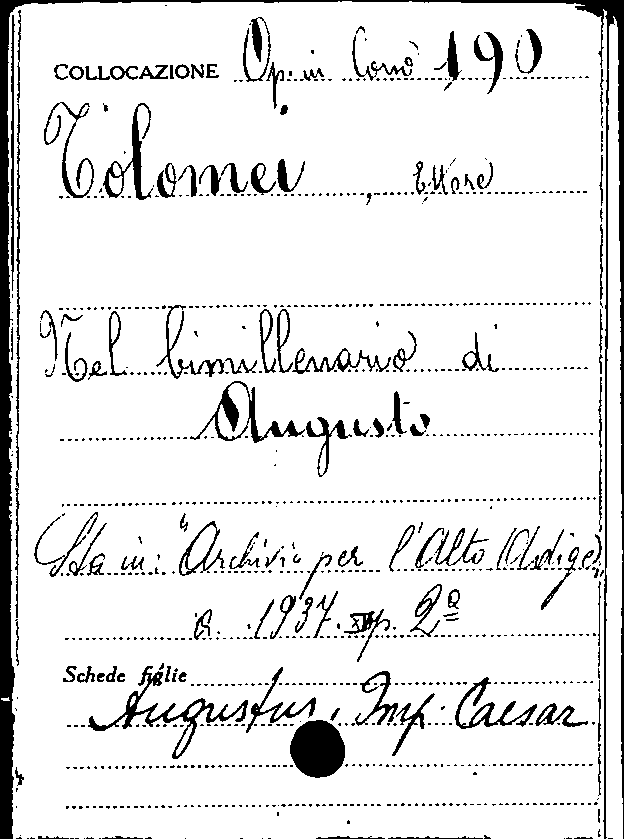 COLLOCAZIONE Op. in Cons 190
Tolomei, Ettore
Nel bimillenario di
Augusto
Sta in: "Archivio per l'Alto Adige"
a. 1937. XXXII p. 2ª
Schede figlie
Augustus, Imp. Caesar